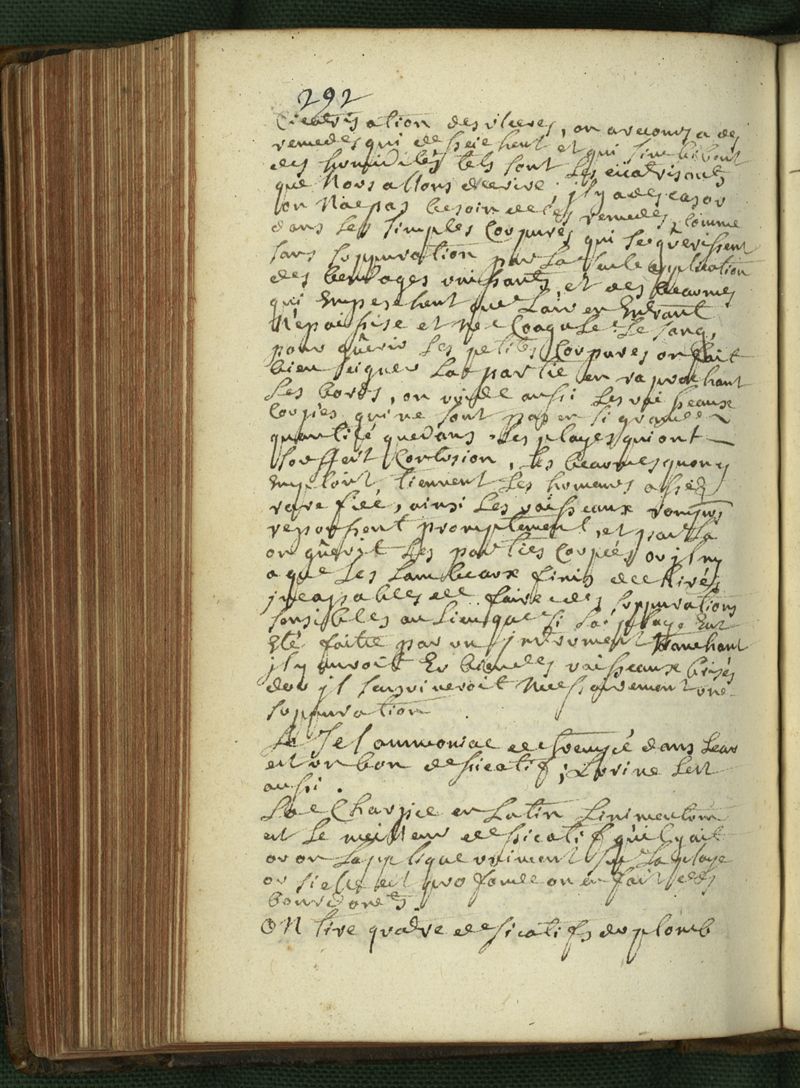 292
Cicatrisation des ulceres, on a recours a des
remedes qui desseichent et qui s'imbibent
des humidités tels sont les cicatrisants
que Nous allons decrire, il y a des cas ou
on Na pas besoin de ces remedes, comme
dans les simples Coupures qui se guerissent
sans suppuration par la seule application
des bendages unissants, et des beaumes
qui Empeschent que l'air en Entrant
N'epaissise et ne Coagule le sang,
pour guêrir les petites Coupures on fait
bien seigner la partie en raprochant
les bords, on vuide aussi les vaisseaux
Coupées qui ne sont pas en si grande
quantité que dans les playes qui ont
souffert Contusion, les beaumes quon y
Emploit, tiennent les humeurs assez
rarefiée, ainsi les vaisseaux rompus
repoussent promptement, et par la
on guêrit les parties Coupées, or il ny
a que les lambeaux finis dechirés
incapables de faire des suppurations
sensibles au lieu que si la playe Eut
Eté faitte par un instrument tranchant
il y auroit Eu bien des vaisseaux brisés
dou il sensuiveroit Necessairement une
suppuration
Le Sel ammoniac detrempé dans Leau
est un bon dessicatif; Lurine Lest
aussi.
La Charpie en Latin Linimentum
est le meilleur dessicatif quil y ait
ou on Lapplique uniment sur la playe
ou si elle est profonde on en fait des
bourdonets.
ON tire quatre dessicatifs du plomb